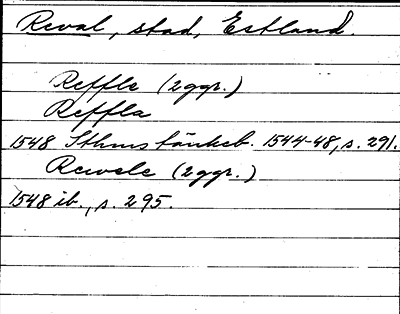 Reval, stad, Estland.
Reffle (2ggr.)
Reffla
1548 Sthms tänkeb. 1544-48, s. 291.
Rewele (2ggr.)
1548 ib., s. 295.